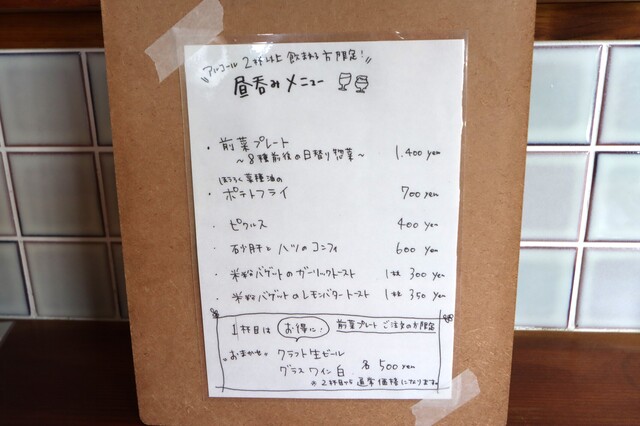 アルコール2杯以上飲まれる方限定!
昼呑みメニュー
・前菜プレート 1,400 yen
～8種前後の日替り惣菜～
ほうろく菜種油の
・ポテトフライ 700 yen
・ピクルス 400 yen
・砂肝とハツのコンフィ 600 yen
・米粉バゲットのガーリックトースト 1ヶ 300 yen
・米粉バゲットのレモンバタートースト 1ヶ 350 yen
1杯目は お得に! 前菜プレートご注文の方限定
"おまかせ" クラフト生ビール
グラスワイン白 各500 yen
※2杯目から通常価格になります。